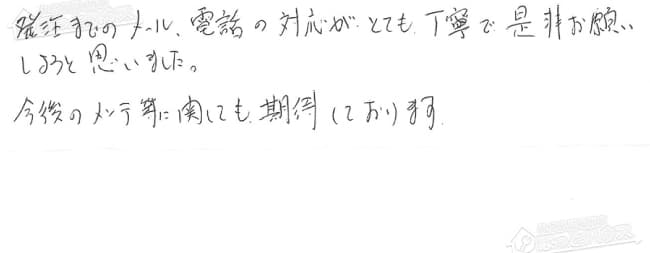 発注までのメール、電話の対応がとても丁寧で是非お願い
しようと思いました。
今後のメンテ等に関しても期待しております